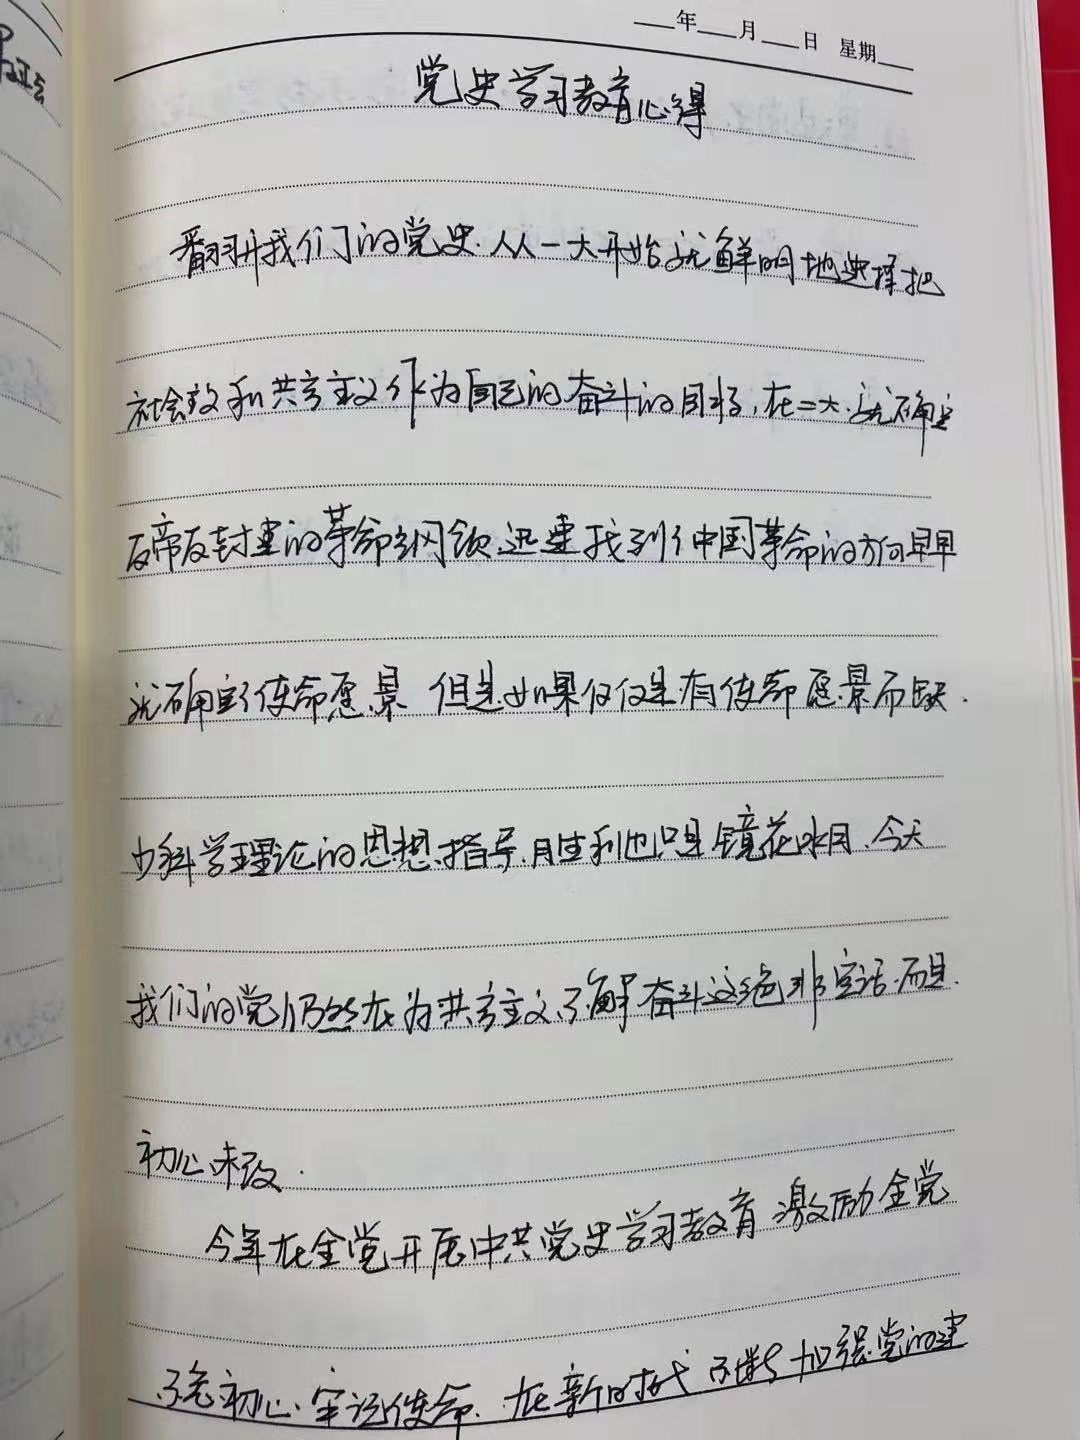 ___年___月___日 星期___
党史学习教育心得
翻开我们的党史.从一大开始就鲜明地选择把
社会主义和共产主义作为自己的奋斗的目标,在二大.就确定
反帝反封建的革命纲领.迅速找到了中国革命的方向早早
就确定了使命愿景 但是如果仅仅是有使命愿景而缺.
少科学理论的思想.指导.胜利也只是镜花水月.今天
我们的党仍然在为共产主义不懈奋斗这绝非空话.而且.
初心未改.
今年在全党开展中共党史学习教育 激励全党
不忘初心.牢记使命.在新时代不断加强党的建